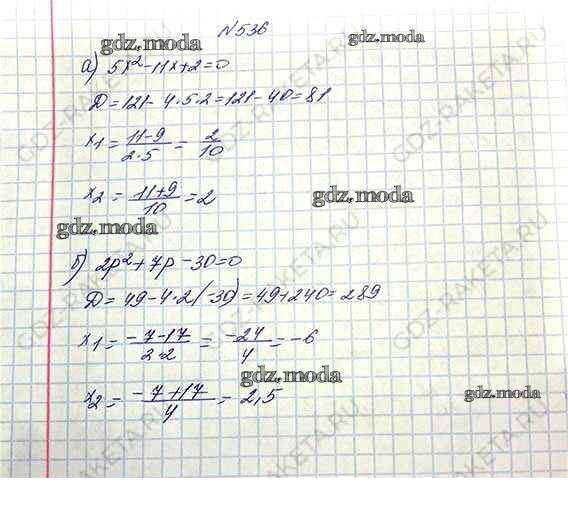 N536
gdz.moda
gdz.moda
а) 5x²-11x+2=0
D=121-4·5·2=121-40=81
x₁ = (11-9)/(2·5) = 2/10
x₂ = (11+9)/10 = 2
gdz.moda
gdz.moda
б) 2p²+7p-30=0
D=49-4·2(-30)=49+240=289
x₁ = (-7-17)/(2·2) = -24/4 = -6
gdz.moda
x₂ = (-7+17)/4 = 2,5
gdz.moda
GDZ-RAKETA.RU
GDZ-RAKETA.RU
GDZ-RAKETA.RU
GDZ-RAKETA.RU